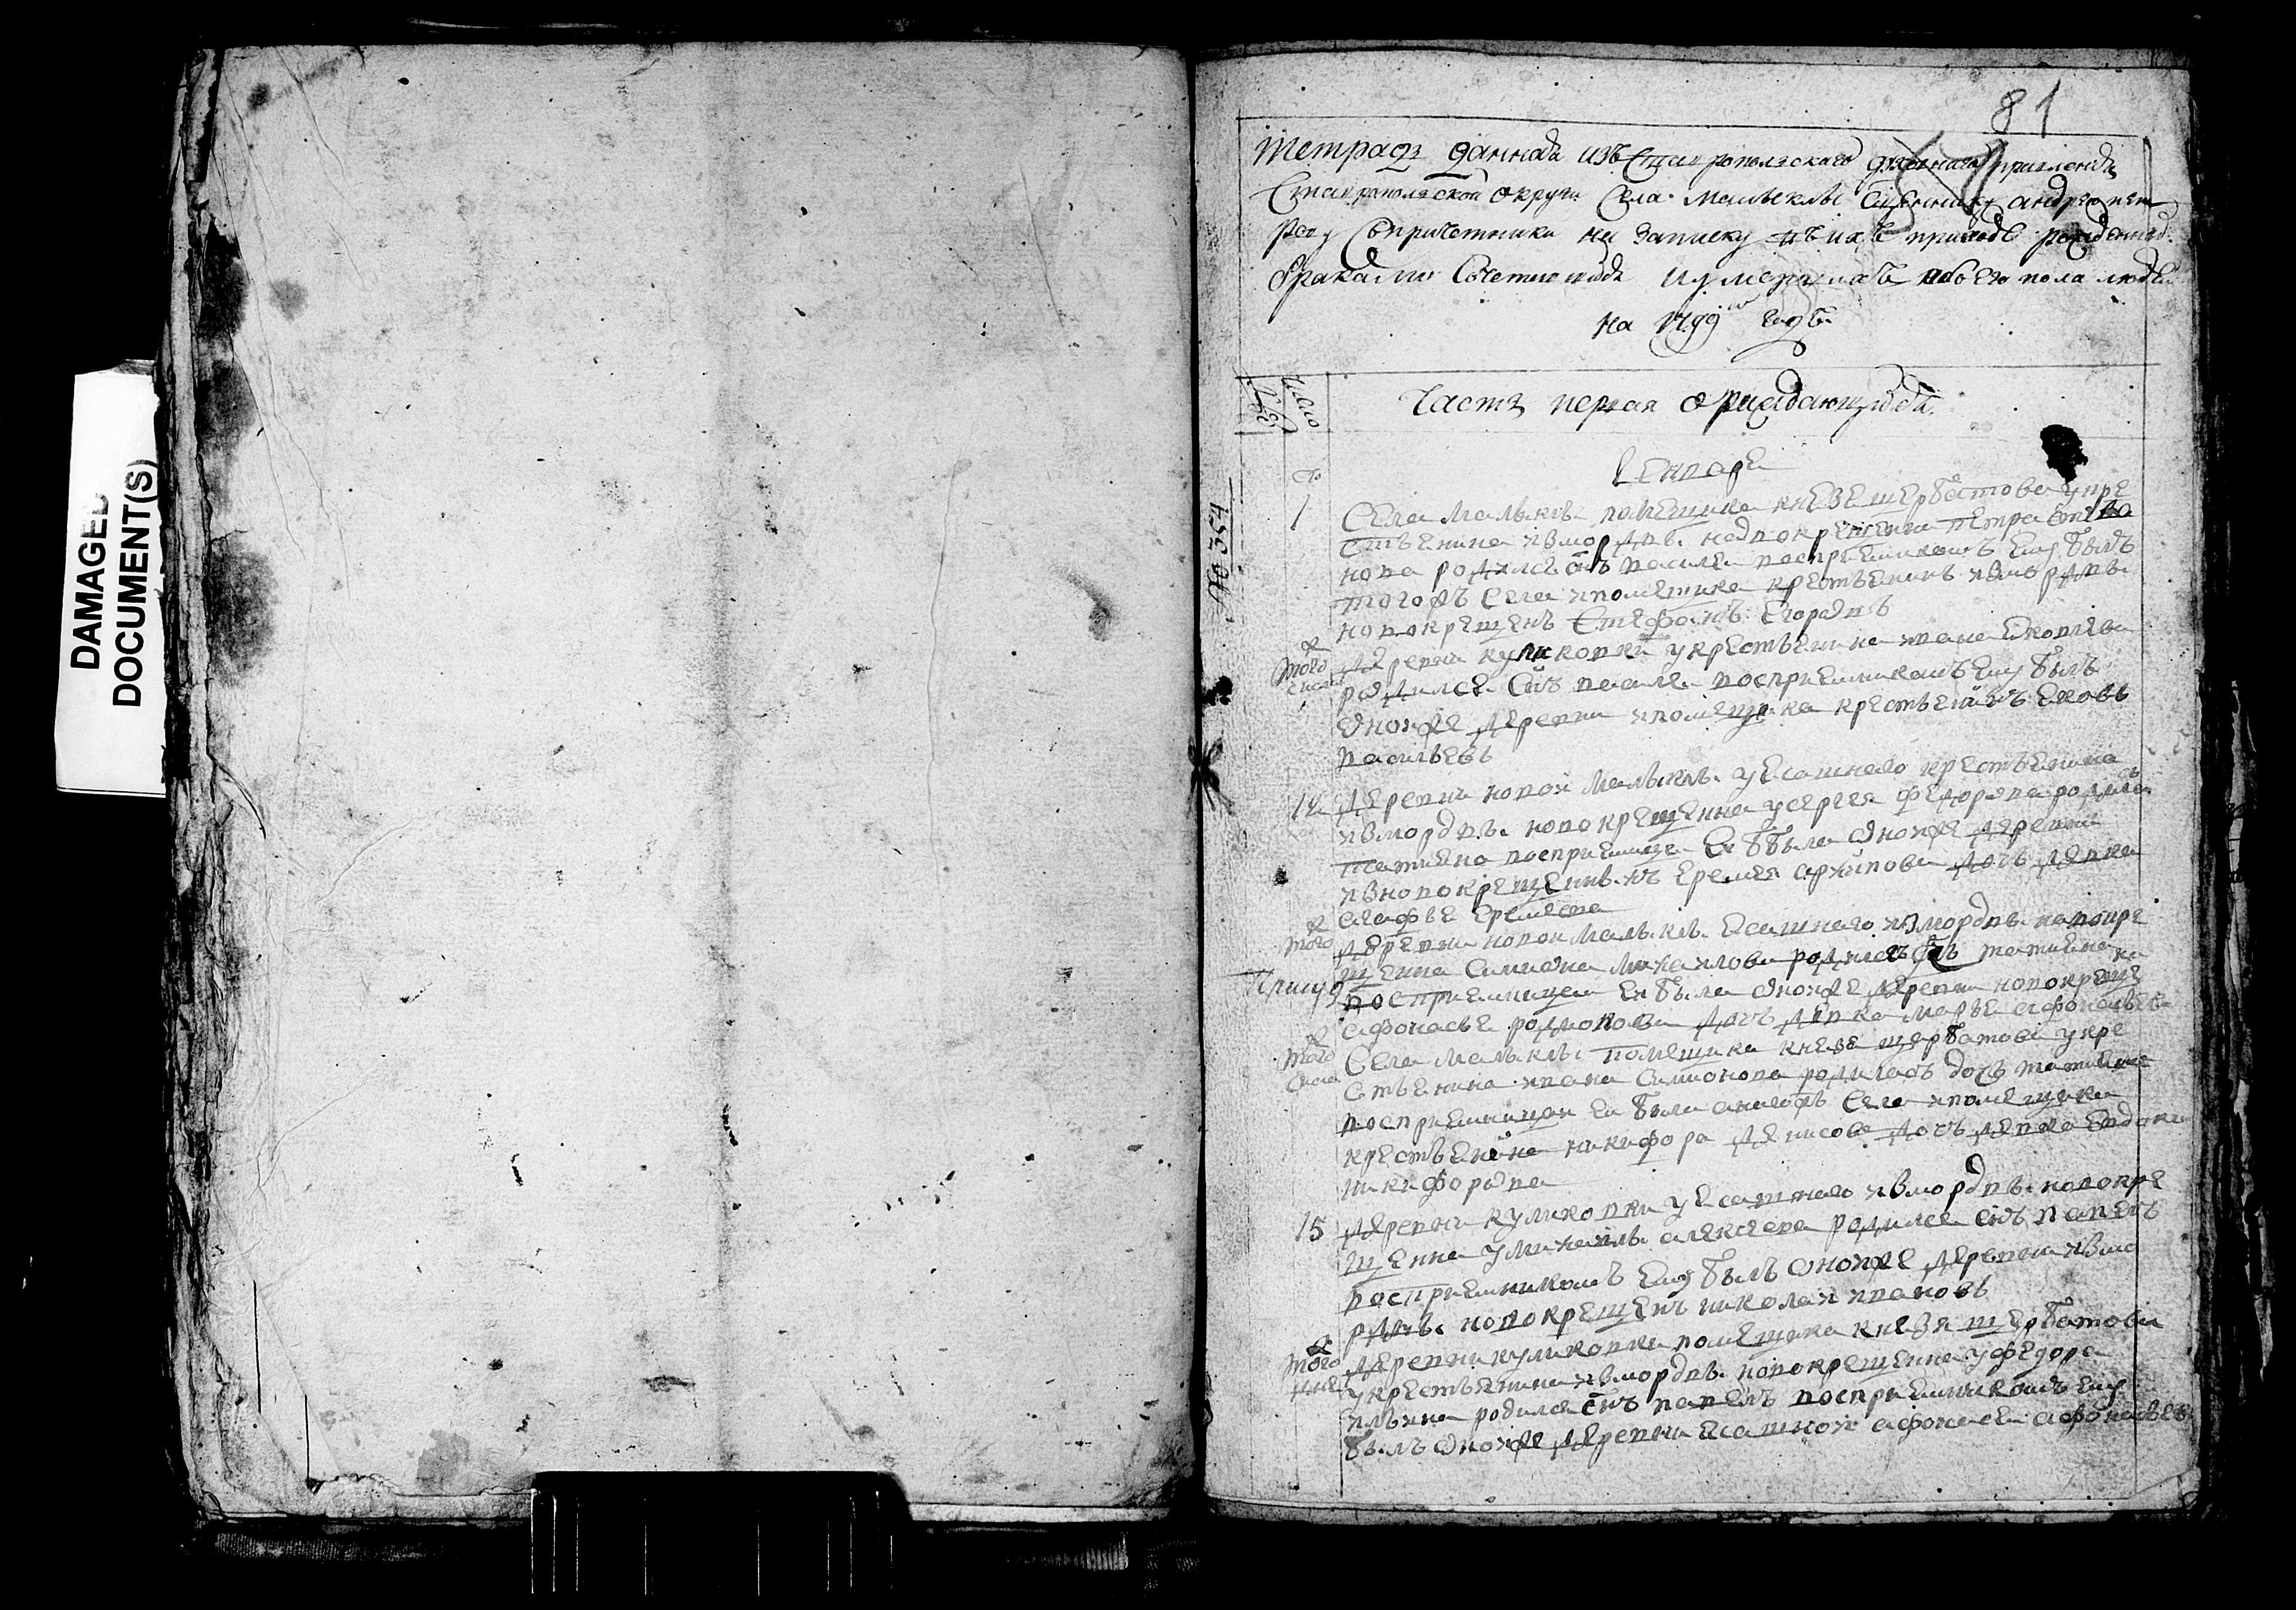 DAMAGED
DOCUMENT(S)
81
Тетрадь данная изъ Ставропольскаго духовнаго правления
Ставропольской округи Села Малыклы Сщеннику андрею пет
рову Спричетники на записку въ ихъ приходе рожденныхъ
бракамъ Сочетавшихся и умершихъ обоего пола людей
на 1799 годъ
число
Часть первая о рождающихся
Генваря
№ 354
1 Села Малыклы помещика князе щербатова у кре
стьенина изморъдвы новокрещена петра степа
нова родилсе снъ василеи восприемникомъ ему былъ
тогожъ Села ипомещика крестьенинъ измордвы
новокрещенъ Стефанъ Егоровъ
того числа Деревни куликовки укрестьенина ивана
родилсе снъ василеи восприемникомъ ему былъ
оноиже деревни ипомещика крестьенинъ Яковъ
васильевъ
12 Деревни новои Малыклы уесашнаго крестьенина
измордвы новокрещенна усергея федорова родилась
татиена восприемница Ей была оноиже деревни
изновокрещеннъ Еремея архипова дочь девка
агафье Еремеева
того Деревни новои Малыклы Есашнаго измордвы новокре
щенна Симиона михаилова родилась дочь татиена
восприемницеи Ей была оноиже деревни новокреще
афонасье родионова дочь девка марье афонасьева
того числа Села Малыклы помещика князе щербатова укре
стьенина ивана Симионова родилась дочь татиена
восприемницеи Ей была оногожъ Села ипомещика
крестьенина никифора денисова дочь девка Евдоки
никифорова
15 Деревни куликовки уесашнаго измордвы новокре
щенна умихаилы алексеева родилсе снъ павелъ
восприемникомъ Ему былъ оноиже деревни измо
рдвы новокрещенъ николаи ивановъ
того дня Деревни куликовки помещика князя щербатова
укрестьенина измордвы новокрещенна уфедора
ильина родилсе снъ павелъ восприемникомъ Ему
былъ оноиже деревни Есашнои афонасеи афонасьевъ